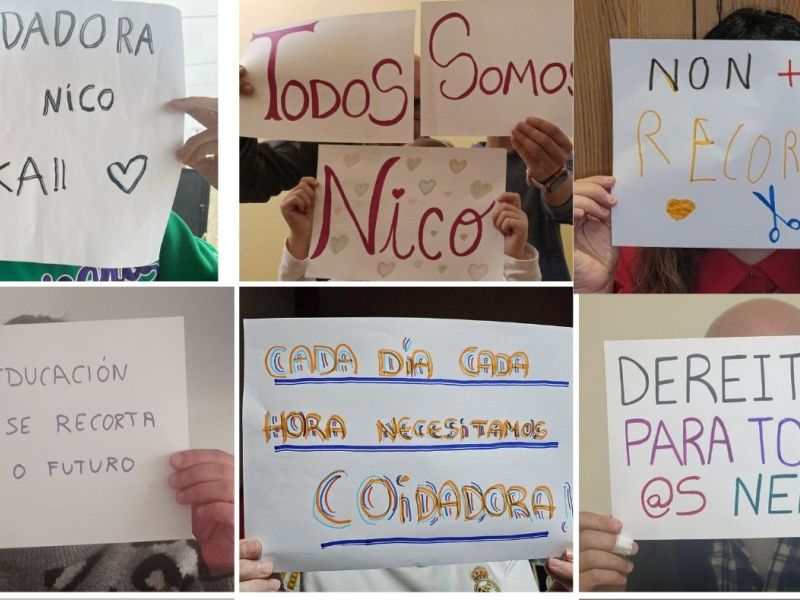 DADORA
NICO
KA!!
TODOS SOMOS
NiCO
NON +
RECOR
EDUCACIÓN
SE RECORTA
O FUTURO
CADA DÍA CADA
HORA NECESITAMOS
COiDADORA!
DEREIT
PARA TO
@S NE